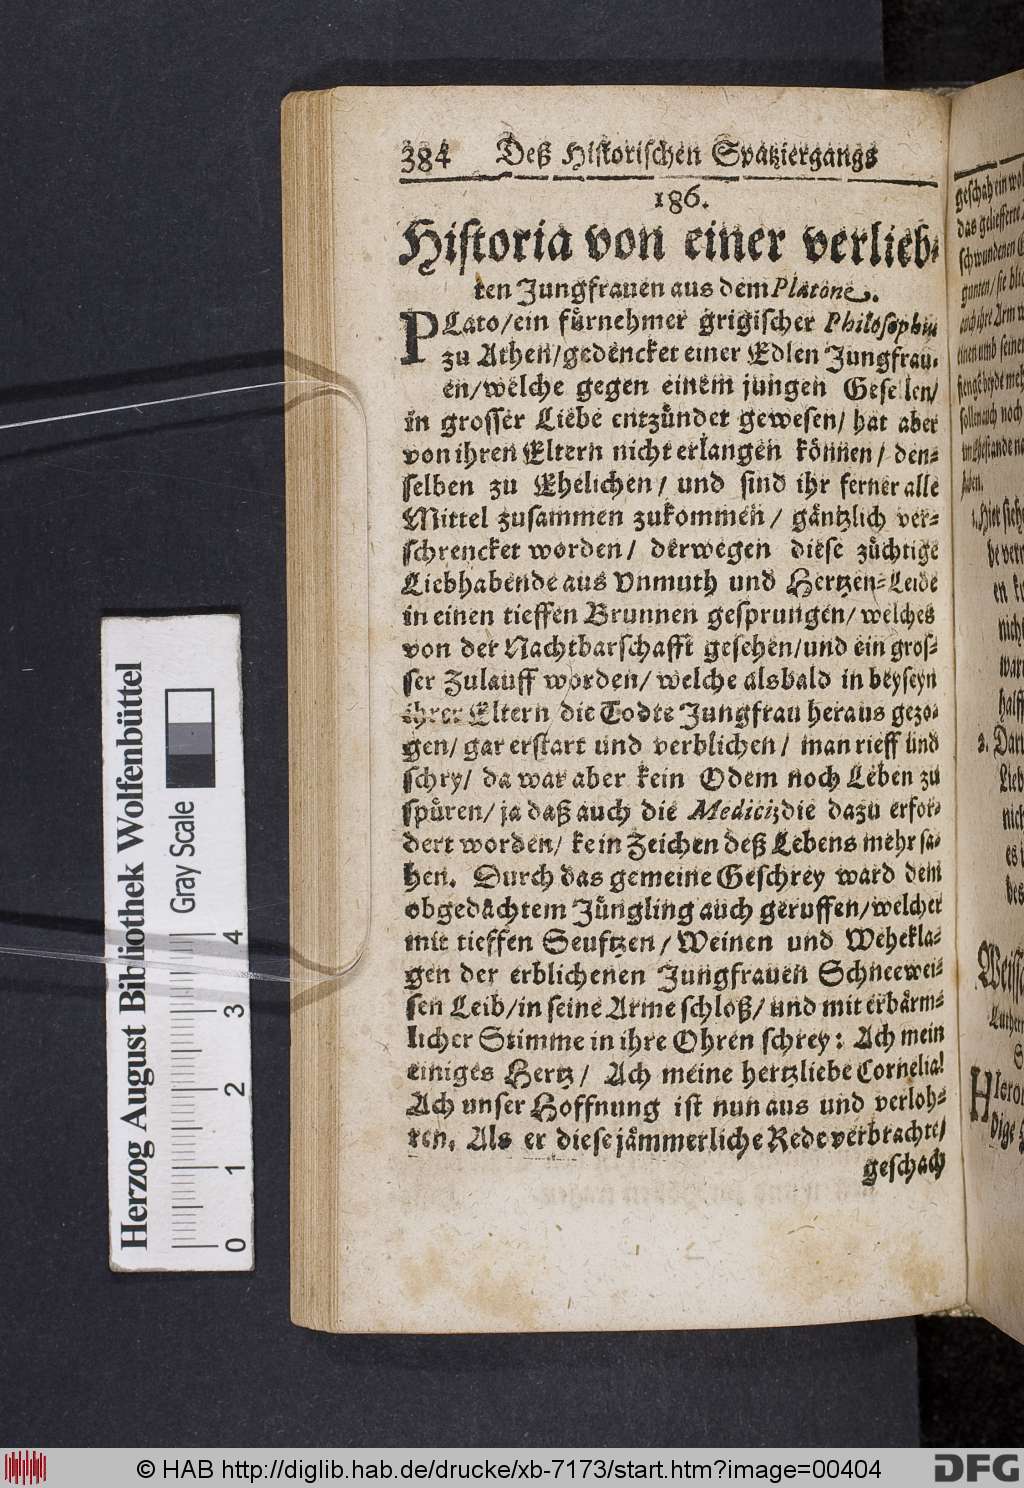 384 Deß Historischen Spatziergangs
186.
Historia von einer verlieb-
ten Jungfrauen aus dem Platone.
PLato/ein fürnehmer grigischer Philosophus
zu Athen/gedencket einer Edlen Jungfrau-
en/welche gegen einem jungen Gesellen/
in grosser Liebe entzündet gewesen/ hat aber
von ihren Eltern nicht erlangen können/ den-
selben zu Ehelichen/ und sind ihr ferner alle
Mittel zusammen zukommen/ gäntzlich ver-
schrencket worden/ derwegen diese züchtige
Liebhabende aus Vnmuth und Hertzen-Leide
in einen tieffen Brunnen gesprungen/ welches
von der Nachtbarschafft gesehen/und ein gros-
ser Zulauff worden/ welche alsbald in beyseyn
ihrer Eltern die Todte Jungfrau heraus gezo-
gen/ gar erstart und verblichen/ man rieff und
schry/ da war aber kein Odem noch Leben zu
spüren/ ja daß auch die Medici, die dazu erfor-
dert worden/ kein Zeichen deß Lebens mehr sa-
hen. Durch das gemeine Geschrey ward dem
obgedachtem Jüngling auch geruffen/welcher
mit tieffen Seufftzen/ Weinen und Wehekla-
gen der erblichenen Jungfrauen Schneewei-
sen Leib/in seine Arme schloß/ und mit erbärm-
licher Stimme in ihre Ohren schrey: Ach mein
einiges Hertz/ Ach meine hertzliebe Cornelia!
Ach unser Hoffnung ist nun aus und verloh-
ren. Als er diese jämmerliche Rede verbrachte/
geschach
geschah ein wol
das gelieferte
schwundenen
gunten/ sie bli
auch ihre Arm
einen umb seinen
fienge beyde meh
sollen auch noch
im Ehestande
haben.
1. Hier siehe
be verm
en
nich
war
halff
2. Daru
Lieb
nich
es
des
Weiss
Luther
HIero
dige
Herzog August Bibliothek Wolfenbüttel
Gray Scale
0 1 2 3 4
© HAB http://diglib.hab.de/drucke/xb-7173/start.htm?image=00404
DFG